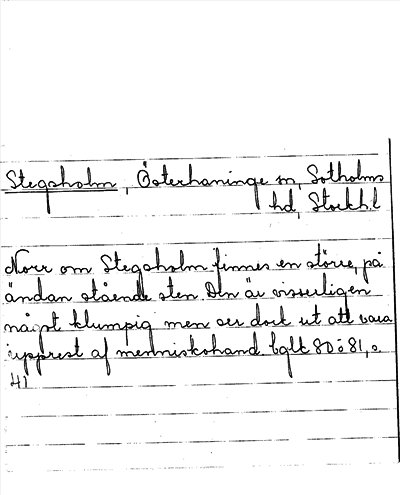 Stegsholm, Österhaninge sn, Sotholms
hd, Stockh.l
Norr om Stegsholm finnes en större, på
ändan stående sten Den är visserligen
något klumpig men ser dock ut att vara
upprest af menniskohand. bglt 80 o 81, s.
41